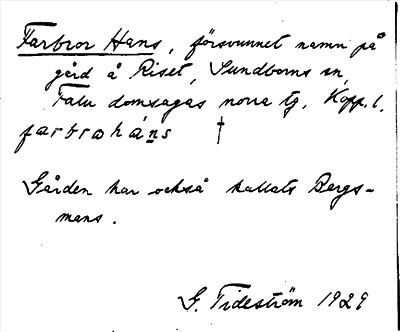 Farbror Hans, försvunnet namn på
gård å Riset, Sundborns sn,
Falu domsagas norra tg, Kopp. l.
farbrohá̱ns †
Gården har också kallats Bergs-
mans.
G. Tideström 1929